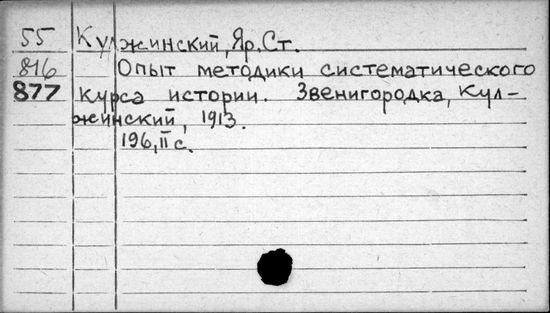 55 Кулжинский, Яр. Ст.
816 Опыт методики систематического
877 курса истории. Звенигородка, Кул-
жинский, 1913.
196, II с.